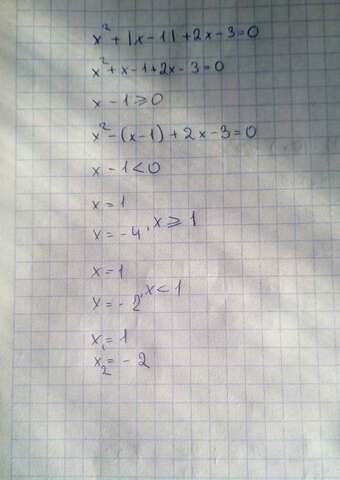 x² + |x - 1| + 2x - 3 = 0
x² + x - 1 + 2x - 3 = 0
x - 1 ⩾ 0
x² - (x - 1) + 2x - 3 = 0
x - 1 < 0
x = 1
x = - 4, x ⩾ 1
x = 1
x = - 2, x < 1
x₁ = 1
x₂ = - 2